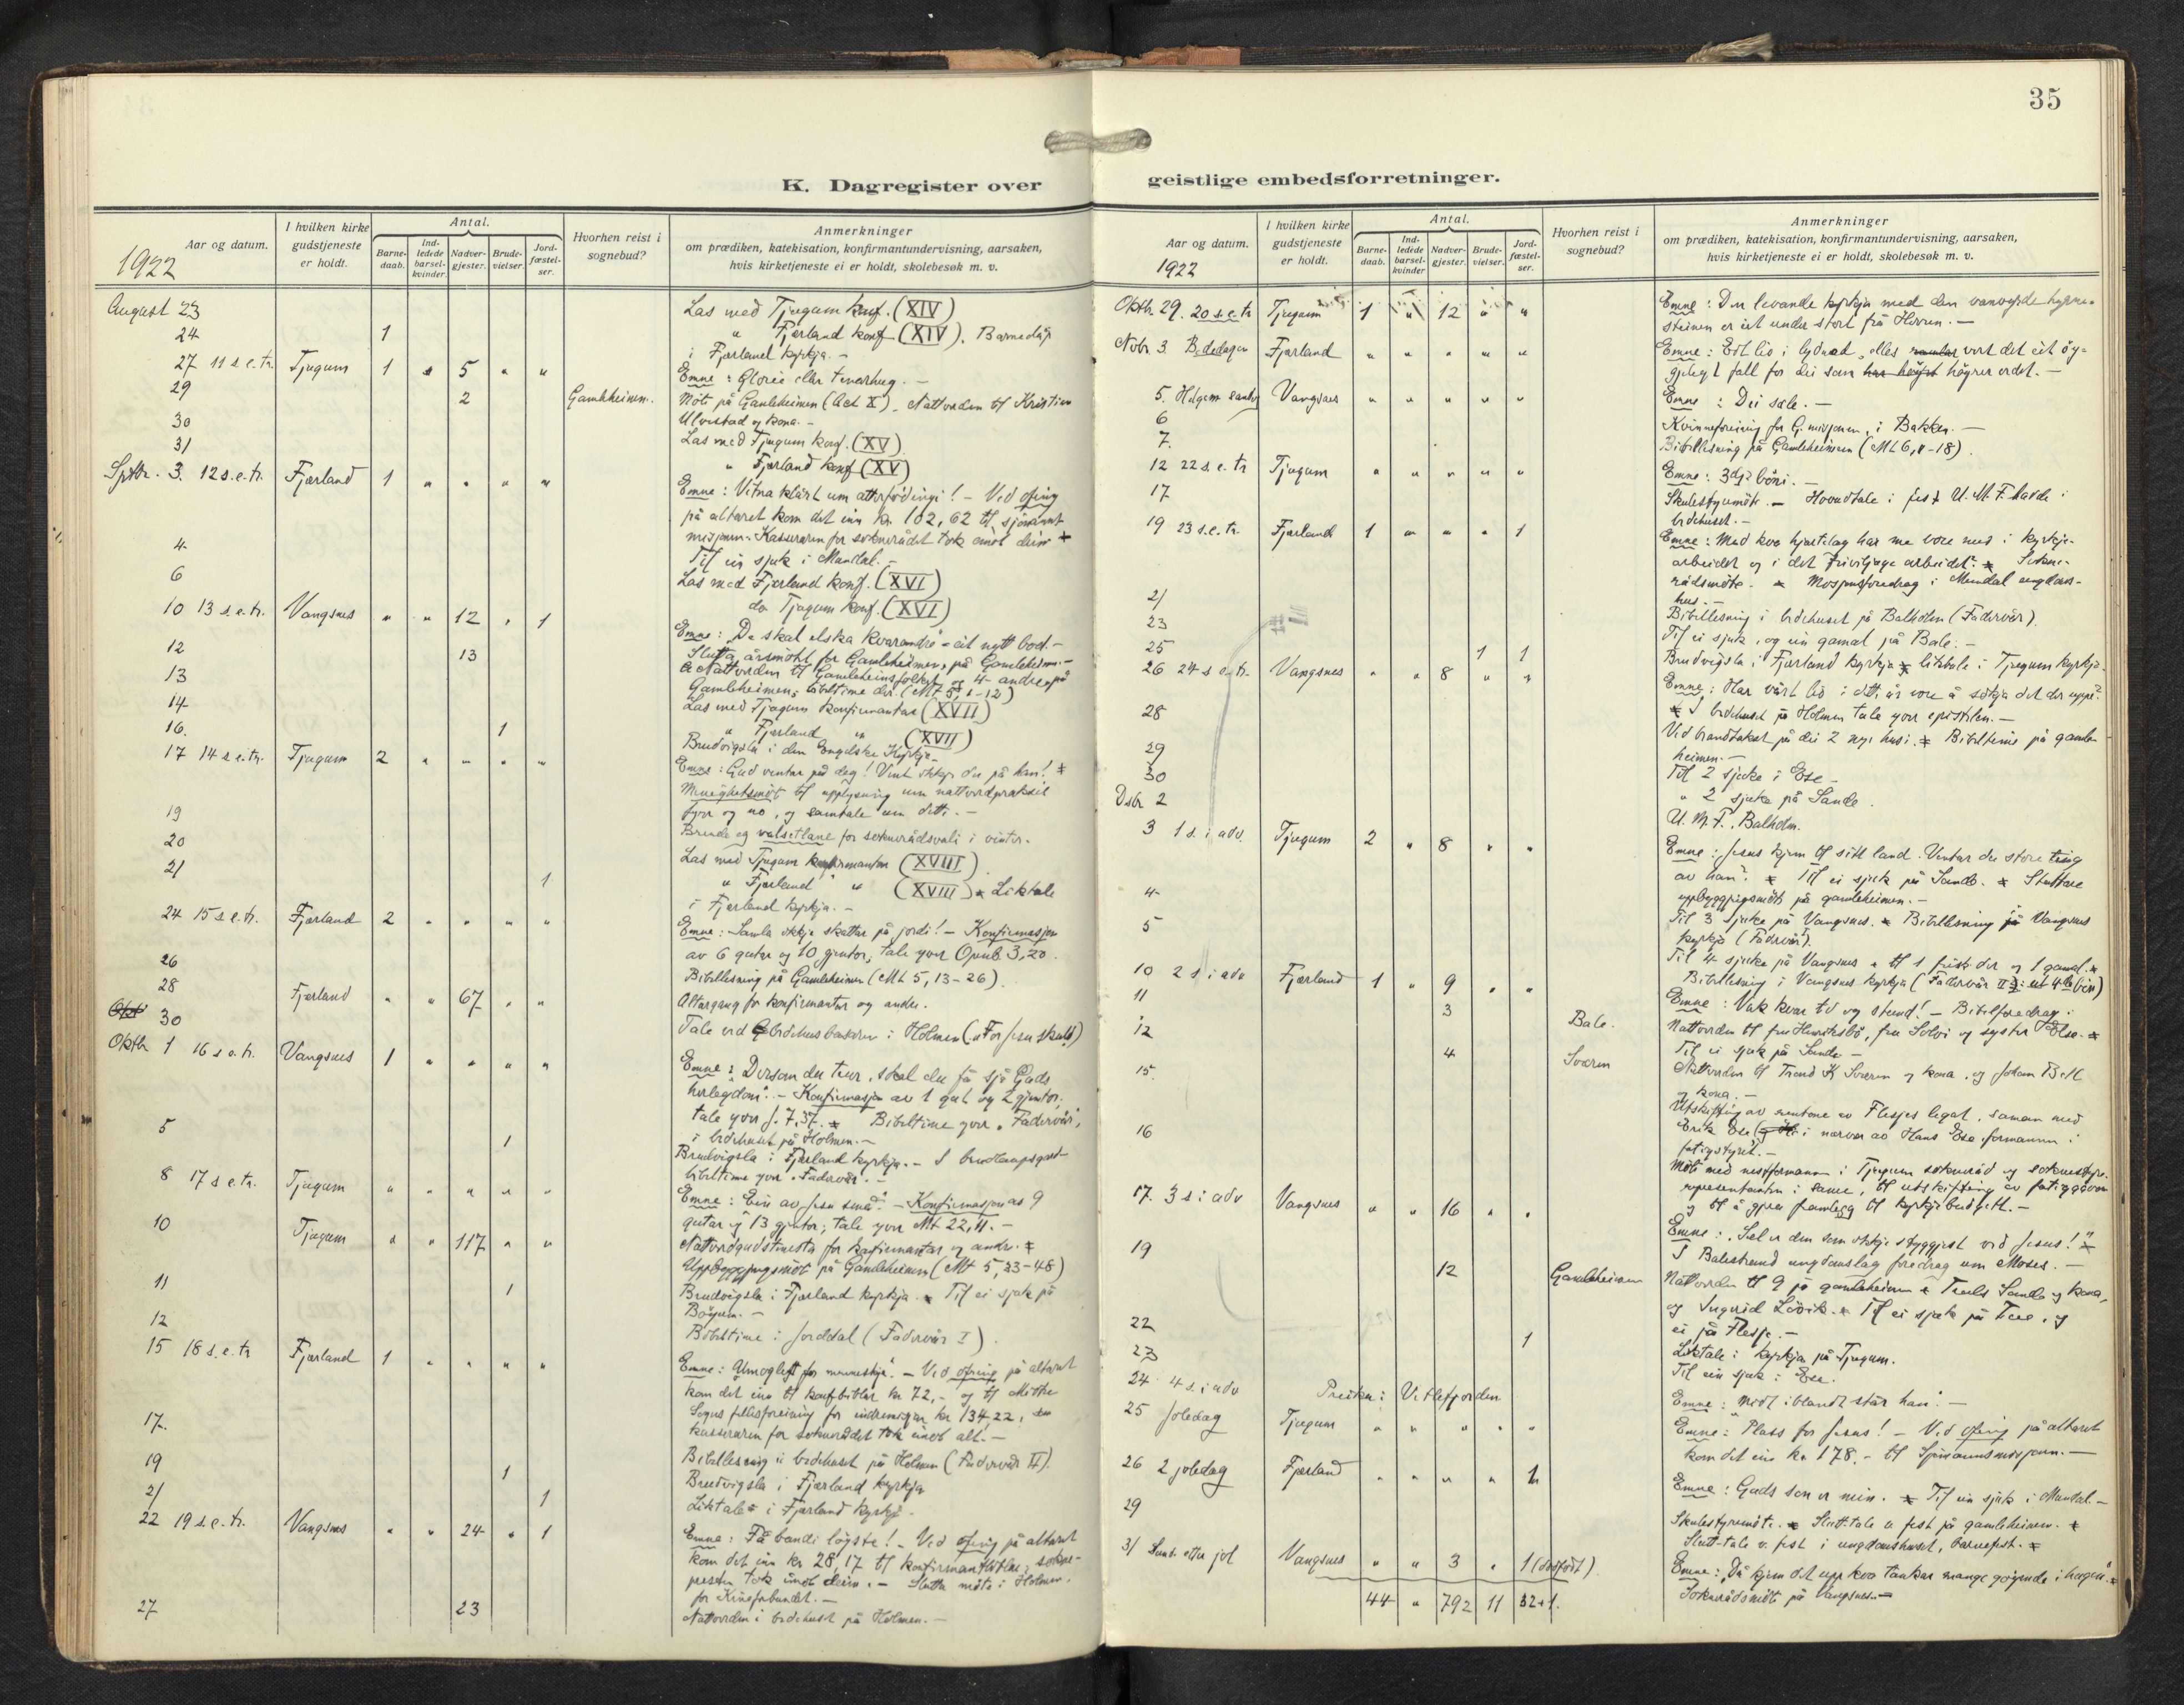 35
K. Dagregister over geistlige embedsforretninger.
Aar og datum.
I hvilken kirke gudstjeneste er holdt.
Antal.
Barne-daab.
Ind-ledede barsel-kvinder.
Nadver-gjester.
Brude-vielser.
Jord-fæstel-ser.
Hvorhen reist i sognebud?
Anmerkninger
om prædiken, katekisation, konfirmantundervisning, aarsaken,
hvis kirketjeneste ei er holdt, skolebesøk m. v.
1922
August 23 Las med Tjugum konf. (XIV)
24 1 " Fjærland konf (XIV). Barnedåp
i Fjærland kyrkja. –
27 11 s. e. tr. Tjugum 1 " 5 " " Emne: Gloria eller
29 2 Gamleheimen. Möte på Gamleheimen (Act X). Nattverden til Kristian
Ulvestad og kona. –
30 Las med Tjugum konf. (XV)
31 " Fjærland konf (XV)
Septbr. 3. 12 s. e. tr. Fjærland 1 " " " " Emne: Vitna klårt um atterfödingi! – Ved ofring
på altaret kom det inn kr. 102,62 til sjömanns-
misjonen. Kasseraren for soknerådet tok imot deim
4 Til ein sjuk i Mundal. –
6 Las med Fjærland konf. (XVI)
do Tjugum konf. (XVI)
10 13 s. e. tr. Vangsnes " " 12 " 1 Emne: De skal elska kvarandre – eit nytt bod. –
12 13 Slutta årsmöte for Gamleheimen, på Gamleheimen. –
Nattverden til Gamleheimsfolket og 4 andre på
13 Gamleheimen, bibeltime der. (Mt 5, 1-12)
14 Las med Tjugum konfirmantar (XVII)
16. 1 " Fjærland " (XVII)
Brudvigsla i den Engelske Kyrkja. –
17 14 s. e. tr. Tjugum 2 " " " " Emne: Gud ventar på deg! Vent ikkje du på han!
Menighetsmöt til upplysning um nattverdpraksis
fyrr og no, og samtale um dette. –
19 valsetlane for soknerådsvali i vinter.
20 Las med Tjugum konfirmantar (XVIII)
21 1 " Fjærland " (XVIII) Liktale
i Fjærland kyrkja. –
24 15 s. e. tr. Fjærland 2 " " " " Emne: Samla ikkje skattar på jordi! – Konfirmasjon
av 6 gutar og 10 gjentor; tale yver Openb 3,20.
26 Bibellesning på Gamleheimen (Mt 5, 13-26)
28 Fjærland " " 67 " " Altargang for konfirmantar og andre.
30 Tale ved bedehusbasaren i Holmen ("For Jesu skuld")
Oktbr 1 16 s. e. tr. Vangsnes 1 " " " " Emne: "Dersom du trur, skal du få sjå Guds
herlegdom". – Konfirmasjon av 1 gut og 2 gjentor;
tale yver J. 7,37. Bibeltime yver "Fadervår",
i bedehuset på Holmen. –
5 1 Brudvigsla i Fjærland kyrkja. – I brudlaupsgard
bibeltime yver "Fadervår". –
8 17 s. e. tr. Tjugum " " " " " Emne: "Ein av Jesu små". – Konfirmasjon av 9
gutar og 13 gjentor; tale yver Mt 22,11. –
10 Tjugum " " 117 " " Nattverdgudstenesta for konfirmantar og andre.
Uppbyggjingsmöt på Gamleheimen (Mt 5, 33-48)
11 1 Brudvigsla i Fjærland kyrkja. Til ei sjuk på
Böyum. –
12 Bibeltime i Jorddal (Fadervår I).
15 18 s. e. tr Fjærland 1 " " " " Emne: "Umogleg for menneskje". – Ved ofring på altaret
kom det inn til konf.biblar kr 72,- og til Midtre
Sogns fellesforeining for indremisjon kr 134,22,
kasseraren for soknerådet tok imot alt. –
17. Bibellesning i bedehuset på Holmen (Fadervår II).
19 1 Brudvigsla i Fjærland kyrkja
21 1 Liktale i Fjærland kyrkja.
22 19 s. e. tr. Vangsnes " " 24 " 1 Emne: Få bandi løyste! – Ved ofring på altaret
kom det inn kr 28,17 til konfirmantbiblar; sokne-
presten tok imot deim. – Slutta möte i Holmen
for Kinaforbundet. –
27 23 Nattverden i bedehuset på Holmen. –
Aar og datum.
1922
I hvilken kirke gudstjeneste er holdt.
Antal.
Barne-daab.
Ind-ledede barsel-kvinder
Nadver-gjester.
Brude-vielser.
Jord-fæstel-ser.
Hvorhen reist i sognebud?
Anmerkninger
om prædiken, katekisation, konfirmantundervisning, aarsaken,
hvis kirketjeneste ei er holdt, skolebesøk m. v.
Oktbr 29. 20 s. e. tr Tjugum 1 " 12 " " Emne: Den levande kyrkja med den vanvyrde hyrne-
steinen er eit under stort frå Herren. –
Novbr 3. Bededagen Fjærland " " " " " Emne: Eit liv i lydnad, elles vert det eit öy-
gjelegt fall for dei som högrer ordet. –
5. Helgem. sundag Vangsnes " " " " " Emne: Dei sæle. –
6 Kvinneforeining for misjonen, i Bakken. –
7. Bibellesning på Gamleheimen (Mt 6, 1-18).
12 22 s. e. tr Tjugum " " " " " Emne: 3dje böni. –
17. Skulestyremöte. – Hovudtale i fest U. M. F. havde i
bedehuset. –
19 23 s. e. tr. Fjærland 1 " " " 1 Emne: Med kva hjartelag har me vore med i kyrkje-
arbeidet og i det friviljuge arbeidet? Sokne-
rådsmöte. Misjonsforedrag i Mundal ungdoms-
hus. –
21 Bibellesning i bedehuset på Balholm (Fadervår).
23 Til ei sjuk, og ein gamal på Bale. –
25 1 1 Brudvigsla i Fjærland kyrkja liktale i Tjugum kyrkja.
26 24 s. e. tr. Vangsnes " " 8 " " Emne: Har vårt liv i dette år vore å sökja det der uppe?
I bedehuset på Holmen tale yver epistelen. –
28 Ved brandtakst på dei 2 nye husi. Bibeltime på gamle-
heimen. –
29 Til 2 sjuke i Ese –
30 " 2 sjuke på Sande.
Dsbr 2 U. M. F., Balholm.
3 1 s. i adv. Tjugum 2 " 8 " " Emne: Jesus kjem til sitt land. Ventar du store ting
av han? Til ei sjuk på Sande. Stuttare
uppbyggjingsmöte på gamleheimen. –
4 Til 3 sjuke på Vangsnes. Bibellesning på Vangsnes
kyrkja (Fadervår).
5 Til 4 sjuke på Vangsnes til 1 frisk der og 1 gamal.
Bibellesning i Vangsnes kyrkja (Fadervår II 4de bön)
10 2 s. i adv Fjærland 1 " 9 " " Emne: Vak kvar tid og stund! – Bibelforedrag.
11 3 Bale. Nattverden til fru Henriksbö, fru Solvi og syster Else.
Til ei sjuk på Sande –
12 4 Sværen Nattverden til Trond K Sværen og kona, og Johan Bell
og kona. –
15. Utskifting av rentone av Flesjes legat, saman med
Erik Ese i nærver av Hans Ese, formannen i
fatigstyret. –
16 Möte med nestformann i Tjugum sokneråd og soknestyre-
representanten i same, til utskifting av fatiggåvor
og til å gjera framlegg til kyrkjebudgett. –
17. 3 s. i adv Vangsnes " " 16 " " Emne: "Sæl er den som ikkje støyggjest ved Jesus!"
I Balestrand ungdomslag foredrag um Moses. –
19 12 Gamleheimen Nattverden til 9 på gamleheimen Truls Sande og kona,
og Ingrid Lövik. Til ei sjuk på Tveo, og
ei på Flesje. –
22 1 Liktale i kyrkja på Tjugum.
23 Til ein sjuk i Ese.
24 4 s. i adv Preika i Vetlefjorden Emne: Midt iblandt står han. –
25 Joledag Tjugum " " " " " Emne: Plass for Jesus! – Ved ofring på altaret
kom det inn kr 178,- til Sjömannsmisjonen. –
26 2 joledag Fjærland " " " " 1 Emne: Guds son er min. Til ein sjuk i Mundal. –
29 Skulestyremöte. Slutt-tale i fest på gamleheimen.
Slutt-tale v. fest i ungdomshuset, barnefest.
31 Sund. etter jol Vangsnes " " 3 " 1 (dødfödt). Emne: "Då kjem det upp kva tankar mange göymde i hugen".
Soknerådsmöte på Vangsnes. –
44 " 792 11 32+1.